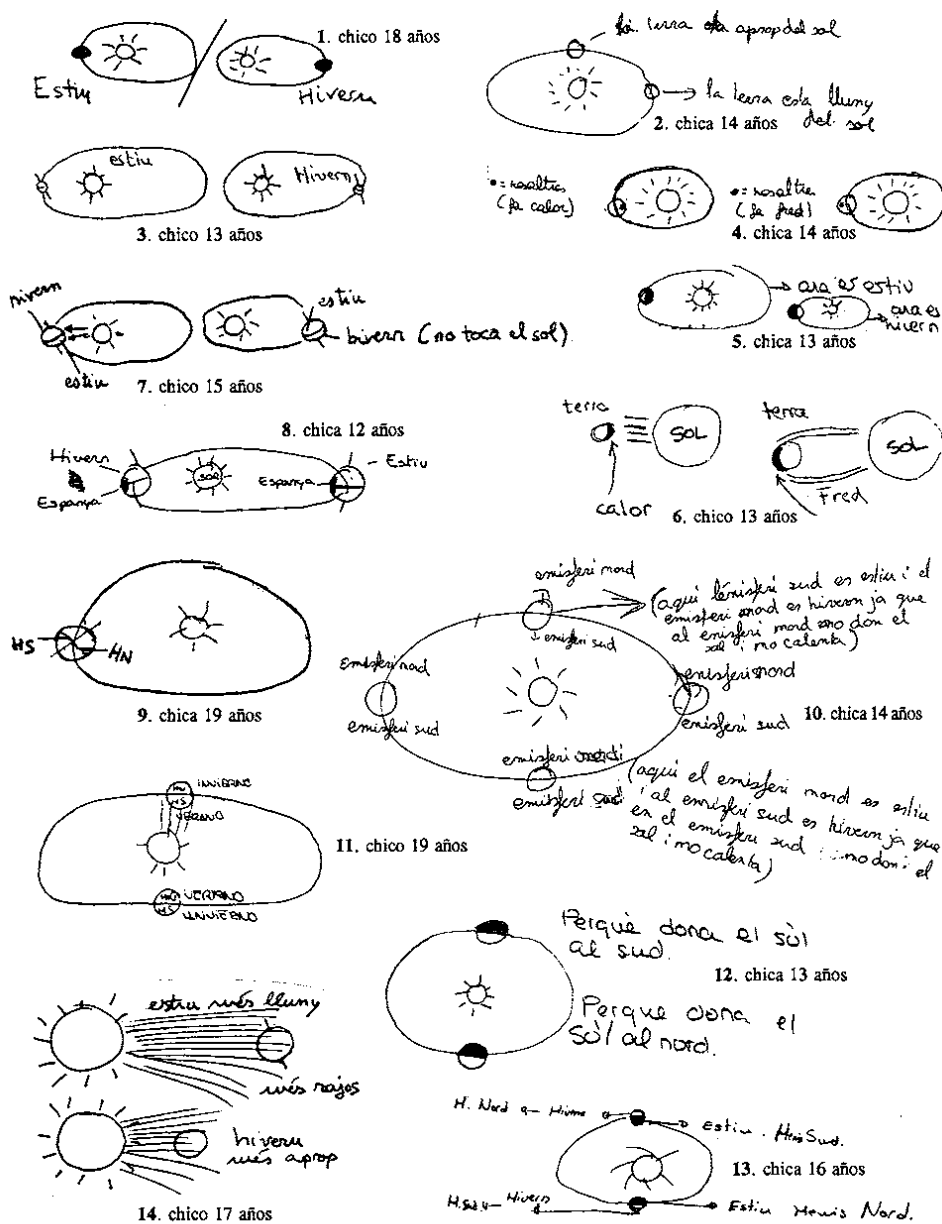 1. chico 18 años
Estiu
Hivern
la terra esta aprop del sol
la terra esta lluny
del sol
2. chica 14 años
estiu
Hivern
3. chico 13 años
•= nosaltres
(fa calor)
•= nosaltres
(fa fred)
4. chica 14 años
ara es estiu
ara es
hivern
5. chica 13 años
hivern
estiu
estiu
hivern (no toca el sol)
7. chico 15 años
terra
SOL
calor
terra
SOL
Fred
6. chico 13 años
8. chica 12 años
Hivern
Espanya
SOL
Espanya
Estiu
HS
HN
9. chica 19 años
emisferi nord
emisferi sud
(aqui l'emisferi sud es estiu i el
emisferi nord es hivern ja que
al emisferi nord no don el
sol i no calenta)
emisferi nord
emisferi sud
emisferi nord
emisferi sud
10. chica 14 años
emisferi
emisferi sud
(aqui el emisferi nord es estiu
i al emisferi sud es hivern ja que
en el emisferi sud no doni el
sol i no calenta)
INVIERNO
HS
VERANO
11. chico 19 años
VERANO
HS
Perquè dona el sòl
al sud.
12. chica 13 años
Perque dona el
sòl al nord.
estiu més lluny
més rajos
hivern
més aprop
14. chico 17 años
H. Nord
Estiu. Hemis Sud.
13. chica 16 años
H.Sud
Hivern
Estiu Hemis Nord.